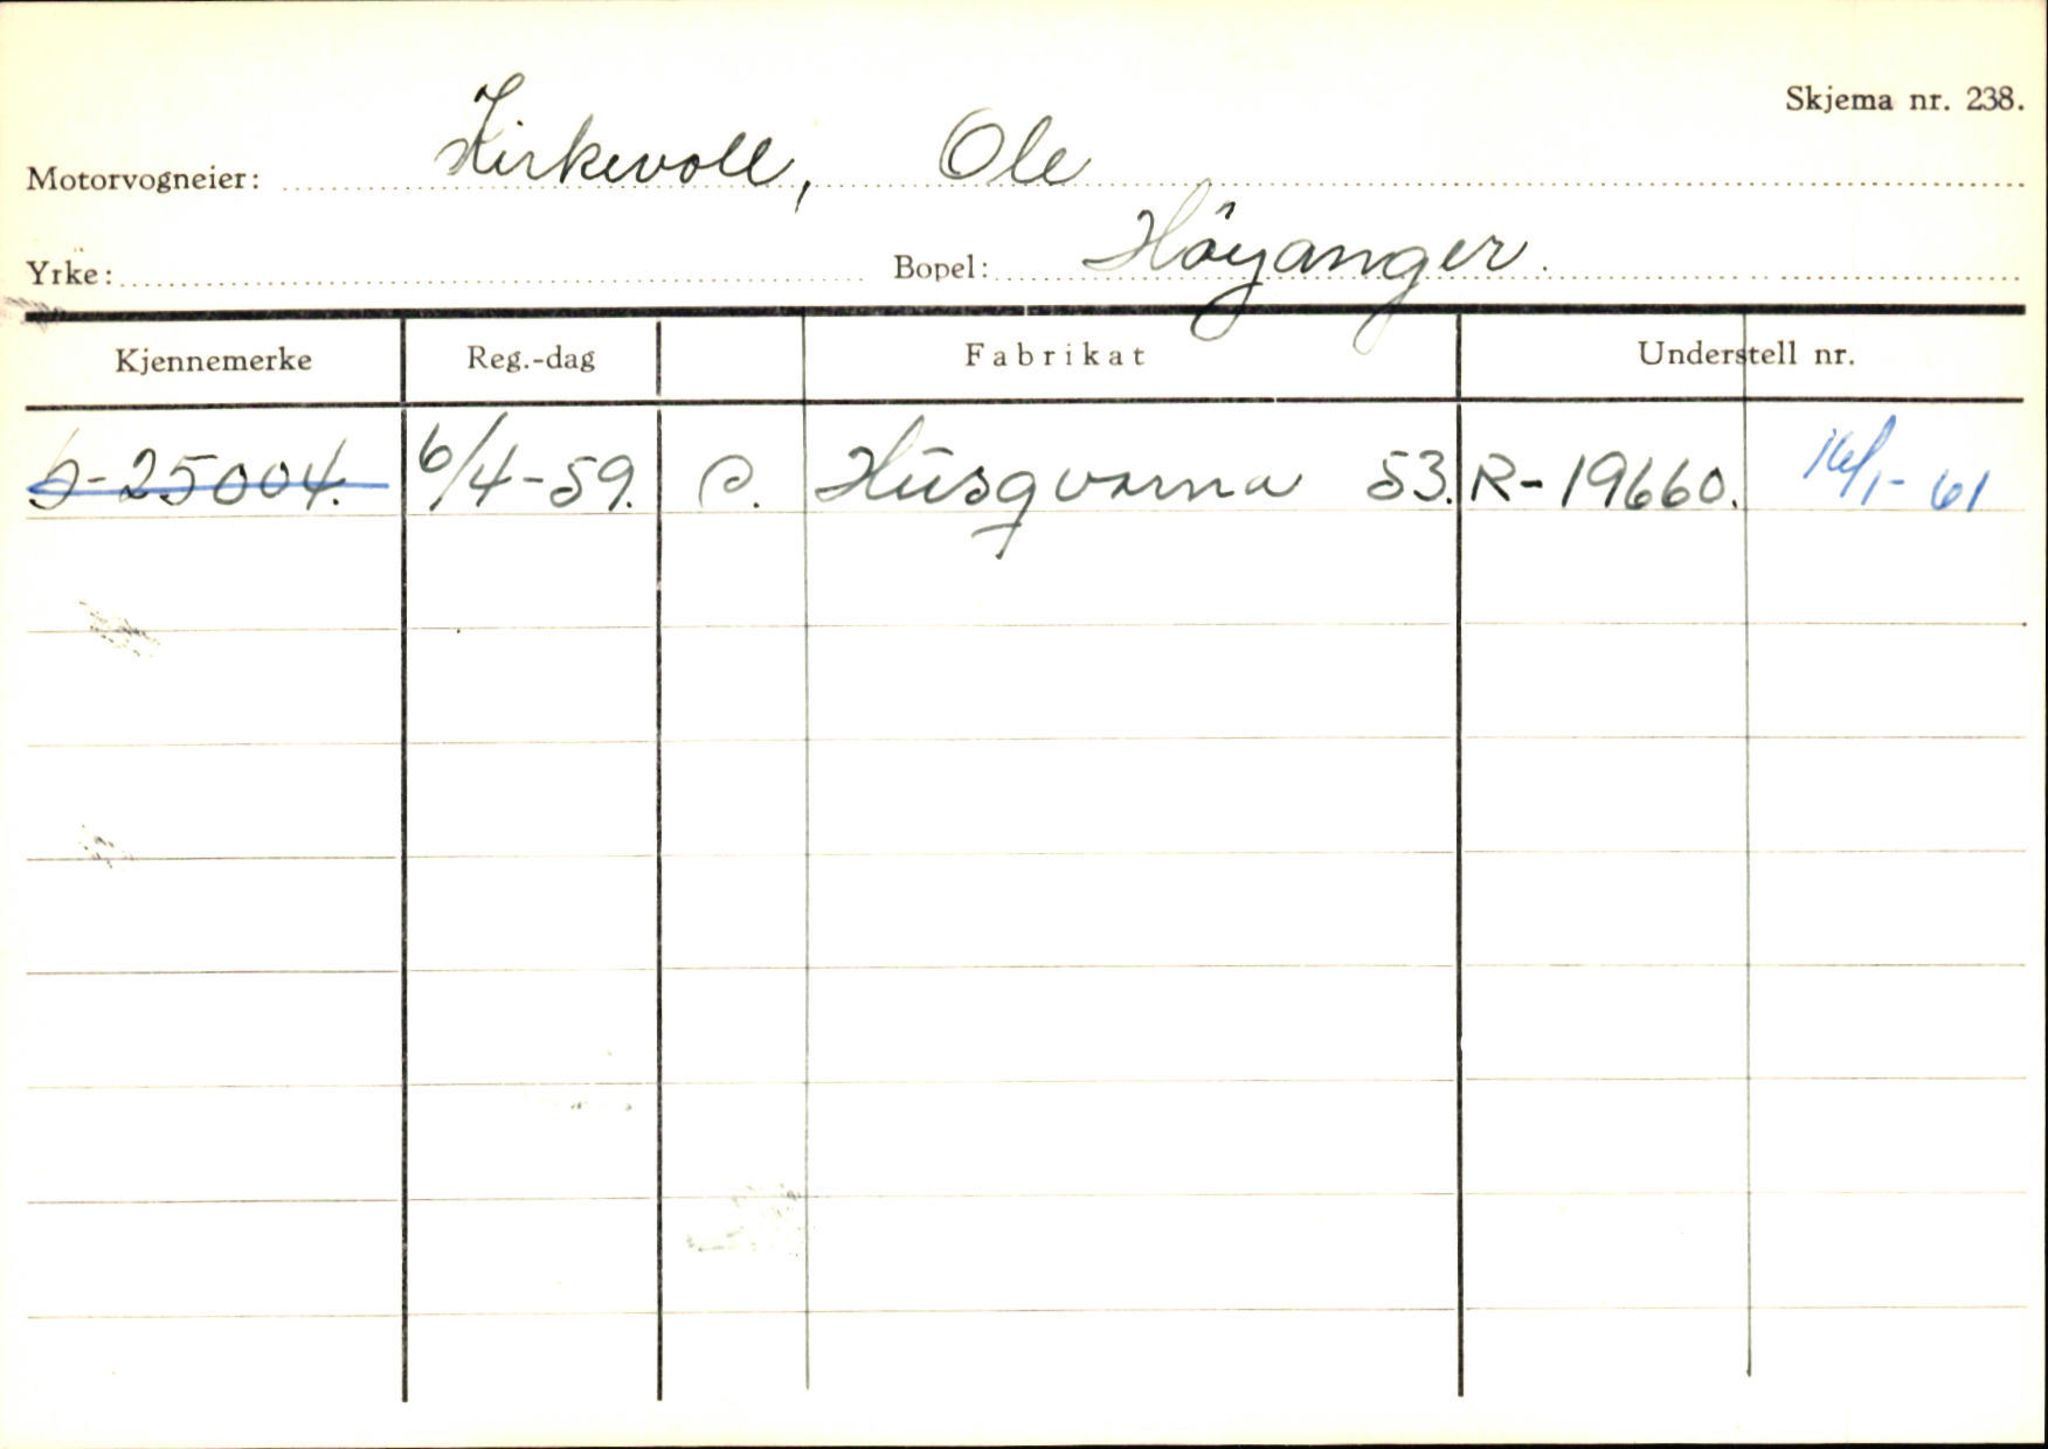 Skjema nr. 238.
Motorvogneier: Kirkevoll, Ole
Yrke: Bopel: Höyanger.
Kjennemerke Reg.-dag Fabrikat Understell nr.
S-25004. 6/4-59. P. Husqvarna 53. R-19660. 16/1-61